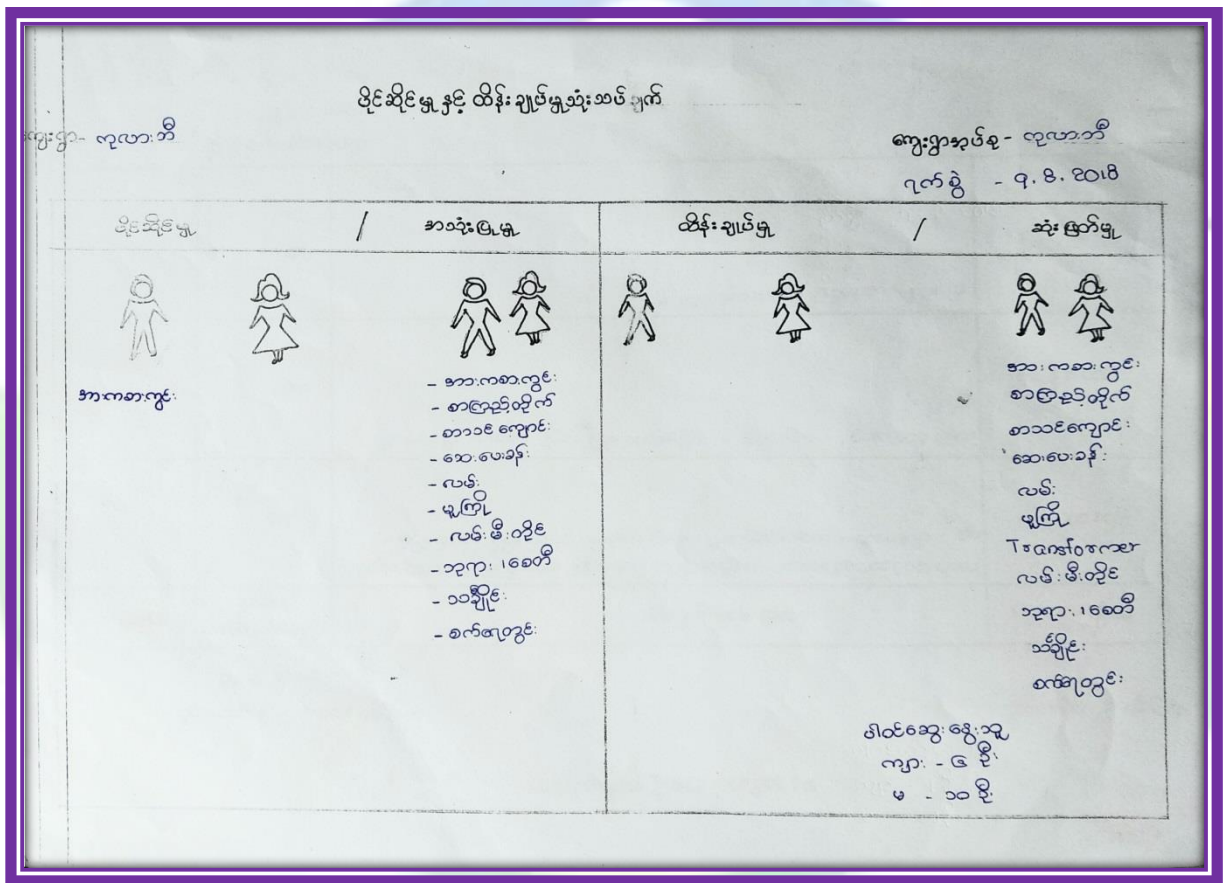 ပိုင်ဆိုင်မှု နှင့် ထိန်းချုပ်မှုသုံးသပ်ချက်
ကျေးရွာ- ကုလားဘီ
ကျေးရွာအုပ်စု - ကုလားဘီ
ရက်စွဲ - 9.8.2018
ပိုင်ဆိုင်မှု / အသုံးပြုမှု
ထိန်းချုပ်မှု / ဆုံးဖြတ်မှု
အားကစားကွင်း
- အားကစားကွင်း
- စာကြည့်တိုက်
- စာသင်ကျောင်း
- ဆေးပေးခန်း
- လမ်း
- မူကြို
- လမ်းမီးတိုင်
- ဘုရား၊စေတီ
- သင်္ချိုင်း
- စက်ရေတွင်း
အားကစားကွင်း
စာကြည့်တိုက်
စာသင်ကျောင်း
ဆေးပေးခန်း
လမ်း
မူကြို
Transformer
လမ်းမီးတိုင်
ဘုရား၊စေတီ
သင်္ချိုင်း
စက်ရေတွင်း
ပါဝင်ဆွေးနွေးသူ
ကျား - ၆ ဦး
မ - ၁၀ ဦး